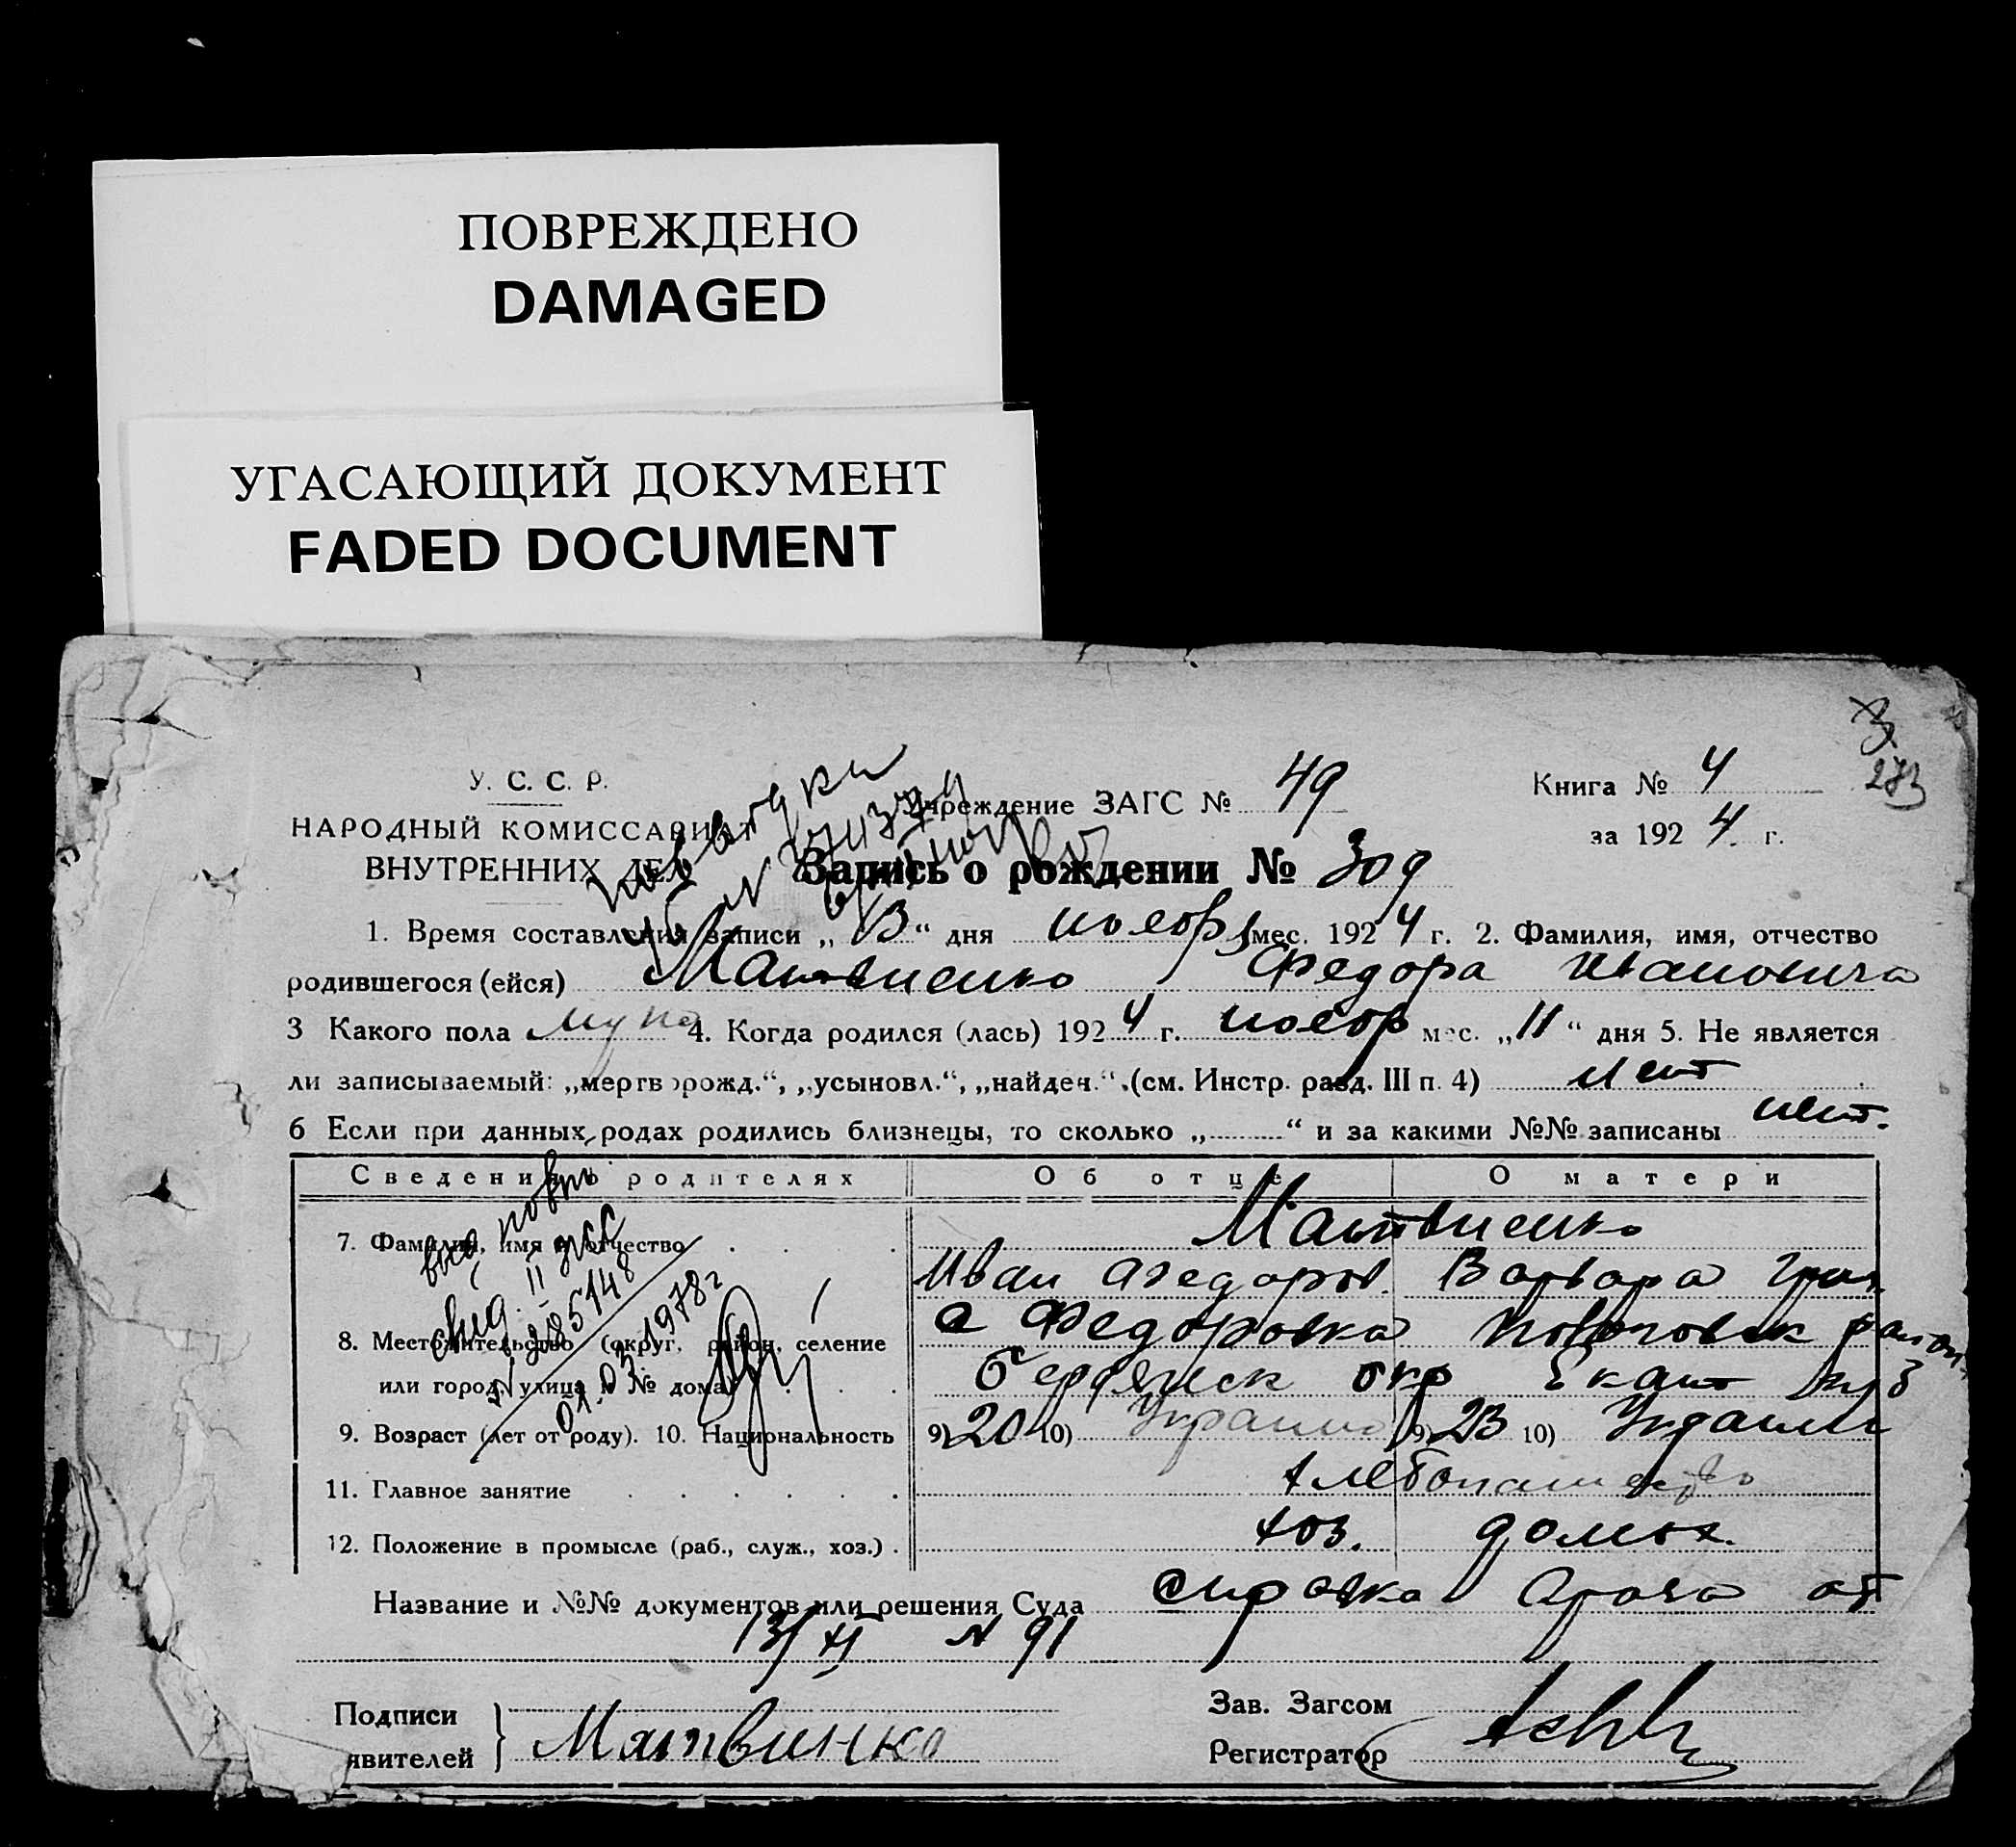 ПОВРЕЖДЕНО
DAMAGED
УГАСАЮЩИЙ ДОКУМЕНТ
FADED DOCUMENT
273
У. С. С. Р.
НАРОДНЫЙ КОМИССАРИАТ
ВНУТРЕННИХ ДЕЛ
Учреждение ЗАГС № 49
Книга № 4
за 1924 г.
Запись о рождении № 309
1. Время составления записи „13“ дня ноебр мес. 1924 г. 2. Фамилия, имя, отчество
родившегося (ейся) Матвиенко Федора Ивановича
3 Какого пола 4. Когда родился (лась) 1924 г. ноебр мес. „11“ дня 5. Не является
ли записываемый: „мертворожд.“, „усыновл.“, „найден.“ (см. Инстр. разд. III п. 4) нет
6 Если при данных родах родились близнецы, то сколько „ “ и за какими №№ записаны нет.
Сведения о родителях Об отце О матери
7. Фамилия, имя и отчество Матвиенко
Иван Федоров. Варвара Григ.
8. Местожительство (округ, район, селение с Федоровка район
или город, улица и № дома) Бердянск окр Екат губ
9. Возраст (лет от роду). 10. Национальность 9) 20 10) Украин 9) 23 10) Украин
11. Главное занятие хлебопашество
12. Положение в промысле (раб., служ., хоз.) хоз. домох.
Название и №№ документов или решения Суда справка от
13/XI № 91
выд. повт.
свид. II
№ 285148
01.03.1978г
Подписи
явителей Матвинко
Зав. Загсом
Регистратор